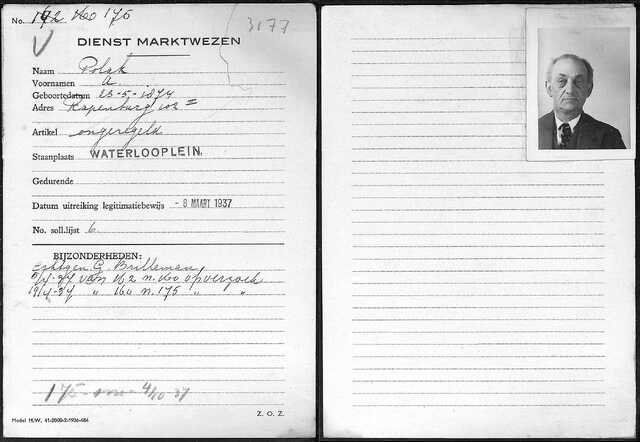 No. 162 160 175
3177
DIENST MARKTWEZEN
Naam Polak
Voornamen A.
Geboortedatum 23-5-1874
Adres Rapenburg 102 II
Artikel ongeregeld
Staanplaats WATERLOOPLEIN.
Gedurende
Datum uitreiking legitimatiebewijs - 8 MAART 1937
No. soll.lijst 6.
BIJZONDERHEDEN:
G. Brilleman
van 162 n. 160 op verzoek
19/4-37 " 160 n. 175 " "
175 4/10-37
Model H.W. 41-2000-2-1936-484
Z. O. Z.